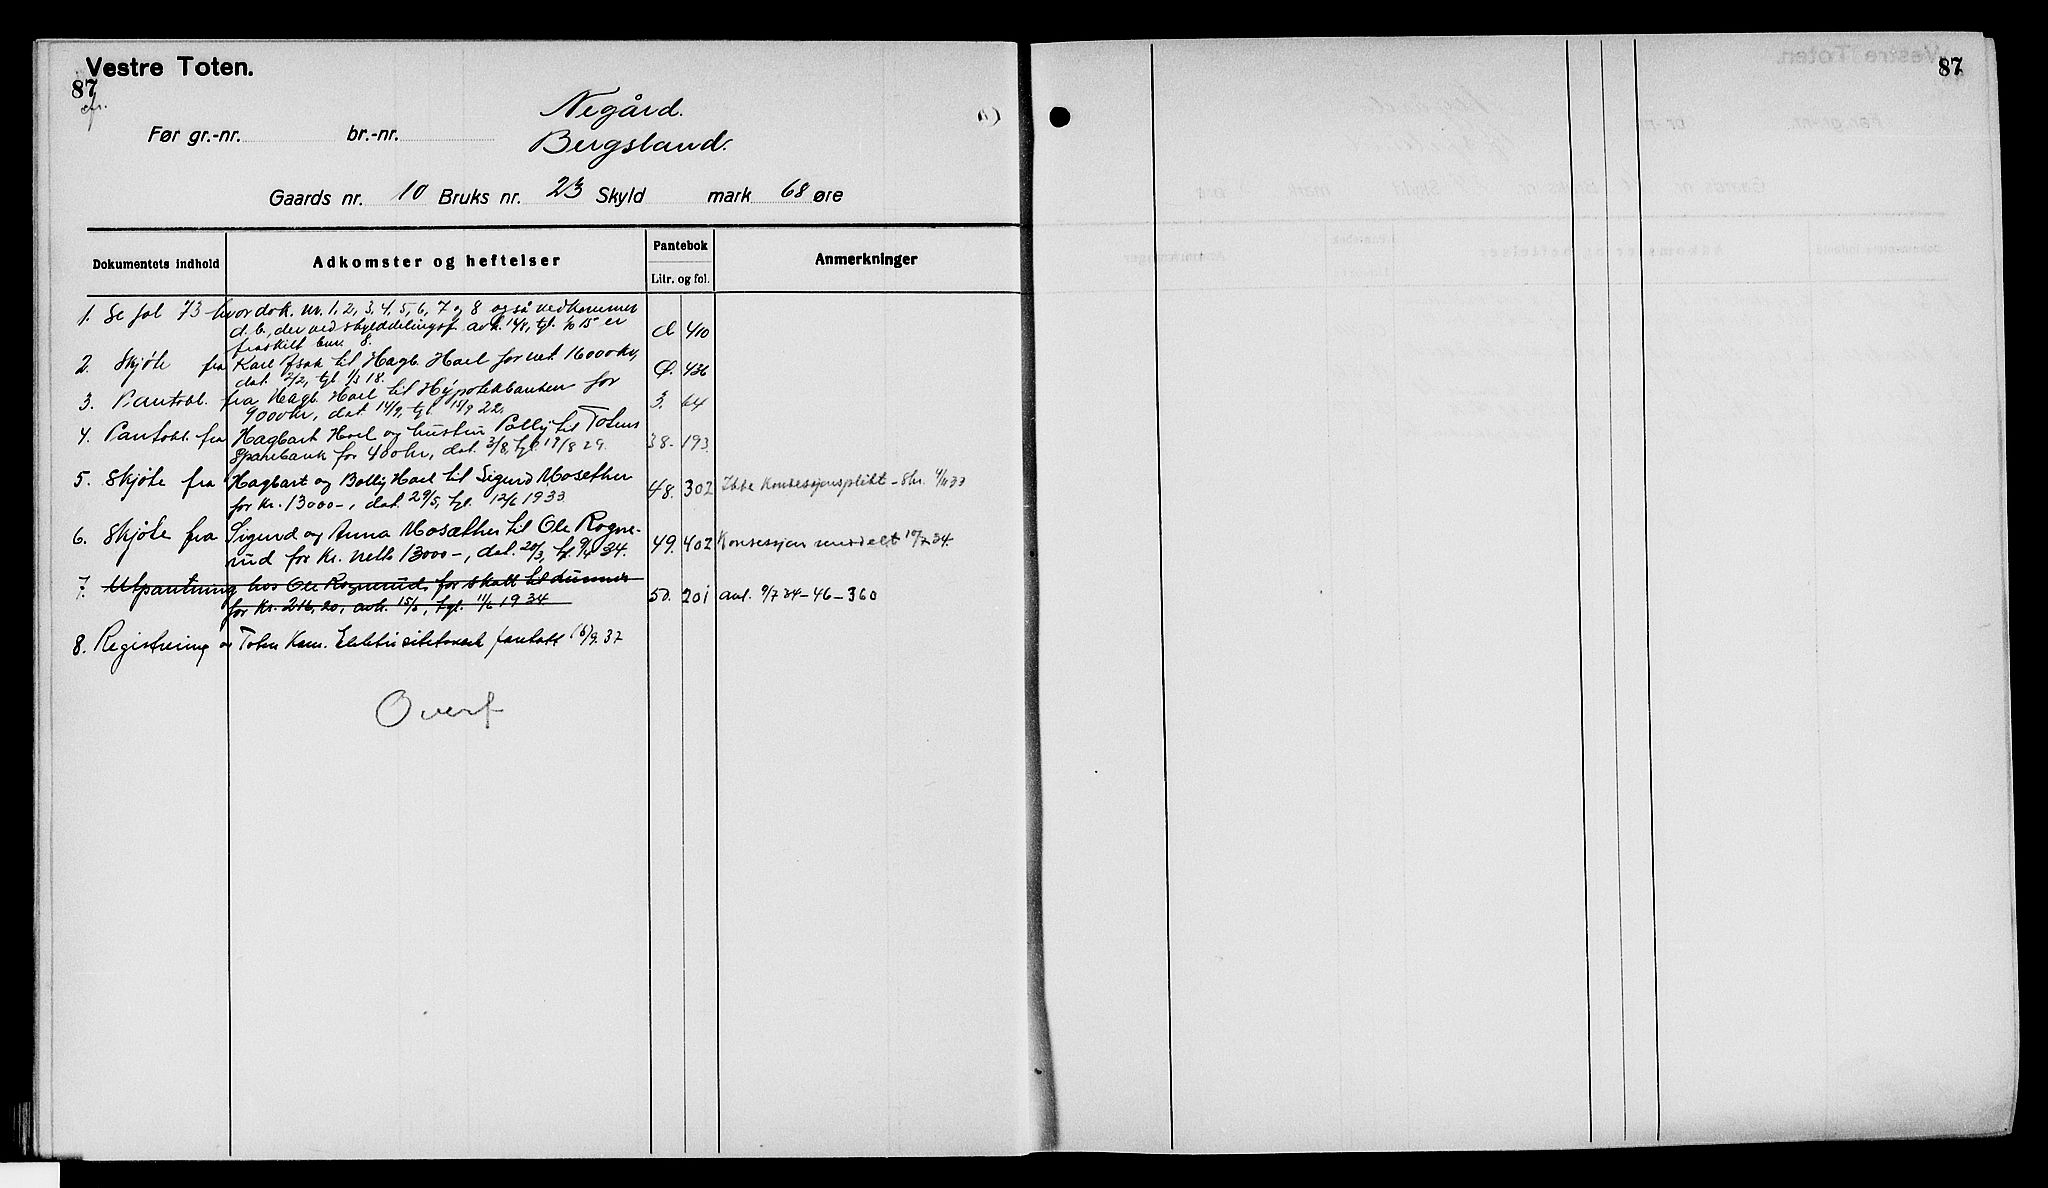 Vestre Toten.
87
Før gr.-nr. br.-nr.
Negård.
Bergsland.
Gaards nr. 10 Bruks nr. 23 Skyld mark 68 øre
Dokumentets indhold Adkomster og heftelser Pantebok Litr. og fol. Anmerkninger
1. Se fol 73 hvor dok. nr. 1, 2, 3, 4, 5, 6, 7 og 8 også vedkommer
d. b., der ved skylddelingsf. avh. 14/8, tgl. 1/10 15 er
fraskilt bnr. 8. 410
2. Skjøte fra Karl Isak til Hagb. Hoel for net. 16000 kr,
dat. 2/2, tgl. 1/3 18. 436
3. Pantobl. fra Hagb. Hoel til Hypotekbanken for
9000 kr, dat 14/9, tgl. 15/9 22. 3. 64
4. Pantobl. fra Hagbart Hoel og hustru Bolly til Totens
Sparebank for 400 kr, dat. 3/8, tgl. 19/8 29. 38. 193
5. Skjøte fra Hagbart og Bolly Hoel til Sigurd Mosether
for kr. 13000-, dat. 29/5, tgl. 12/6 1933 48. 302 Ikke konsesjonsplikt - Skr. 4/1133
6. Skjøte fra Sigurd og Anna Mosæther til Ole Rogne-
rud for kr. netto 13000-, dat. 20/3, tgl. 9/4 34. 49. 402 Konsesjon meddelt 17/7 34.
7. Utpantning hos Ole Rognerud for skatt til kommunen
for kr. 216,20, avh. 15/5, tgl. 11/6 1934 50. 201 avl. 9/7 34-46-360
8. Registrering av Toten Kom. Elektrisitetsverk foretatt 16/9. 37
Overf
87